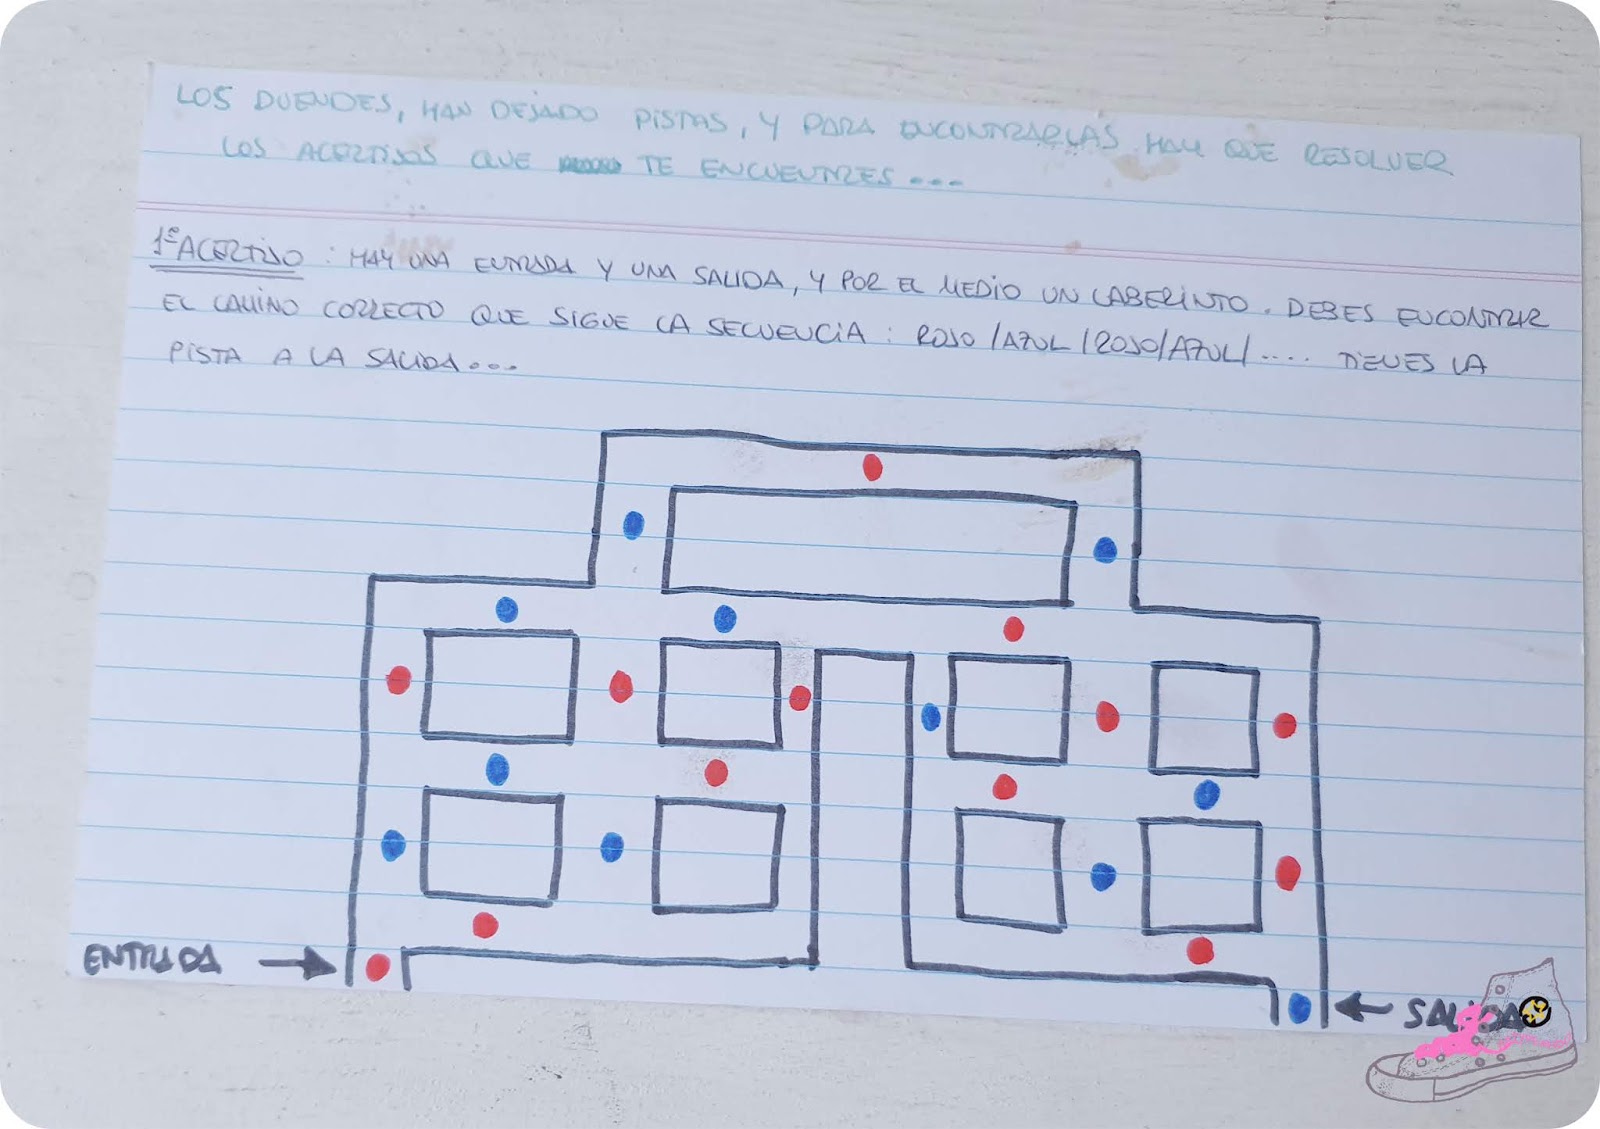 LOS DUENDES, HAN DEJADO PISTAS, Y PARA ENCONTRARLAS HAY QUE RESOLVER
LOS ACERTIJOS QUE TE ENCUENTRES...
1º ACERTIJO : HAY UNA ENTRADA Y UNA SALIDA, Y POR EL MEDIO UN LABERINTO. DEBES ENCONTRAR
EL CAMINO CORRECTO QUE SIGUE LA SECUENCIA : ROJO/AZUL/ROJO/AZUL/.... TIENES LA
PISTA A LA SALIDA...
ENTRADA
SALIDA